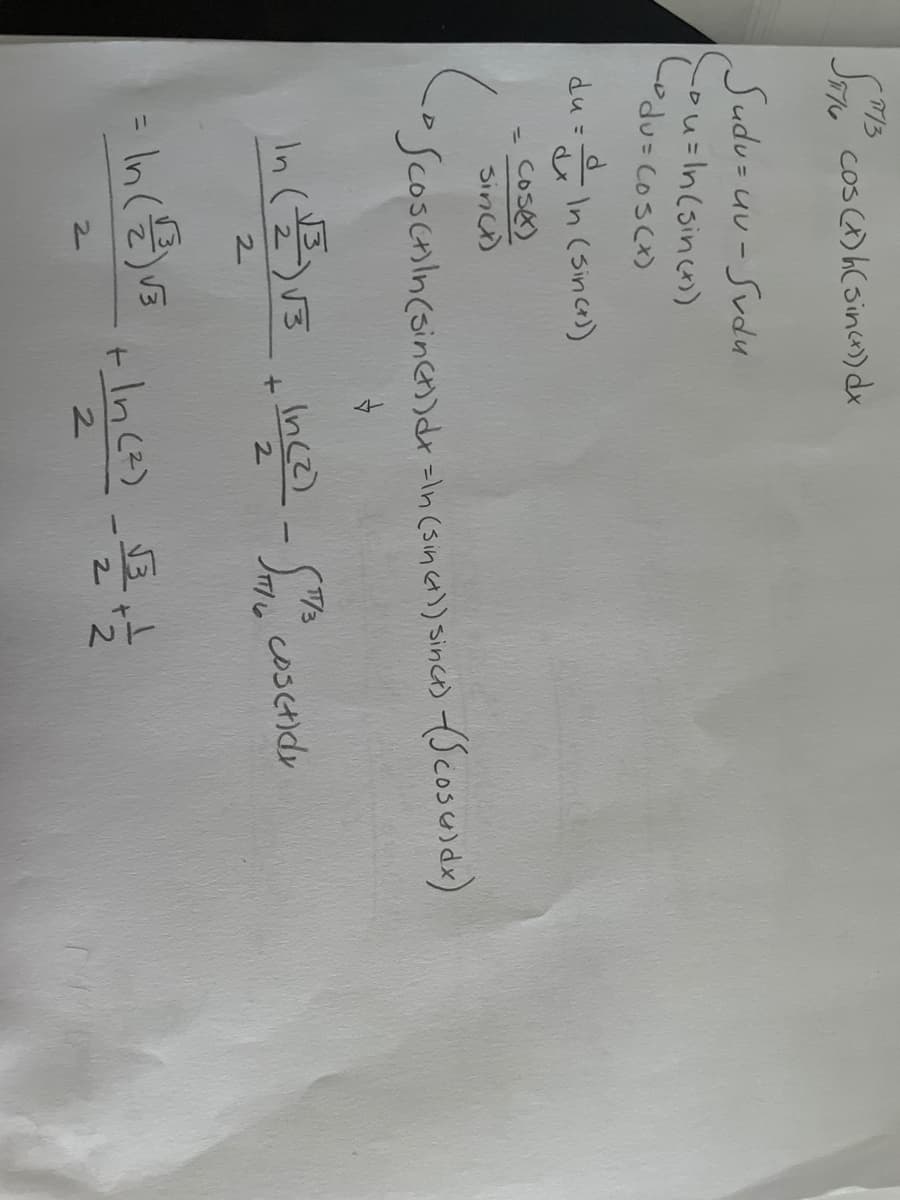 ∫_{π/6}^{π/3} cos(x) ln(sin(x)) dx
∫udv = uv - ∫vdu
↳ u = ln(sin(x))
↳ dv = cos(x)
du = d/dx ln(sin(x))
= cos(x)/sin(x)
↳ ∫cos(x)ln(sin(x))dx = ln(sin(x))sin(x) - (∫cos(x)dx)
↓
ln(√3/2)√3/2 + ln(2)/2 - ∫_{π/6}^{π/3} cos(x)dx
= ln(√3/2)√3/2 + ln(2)/2 - √3/2 + 1/2